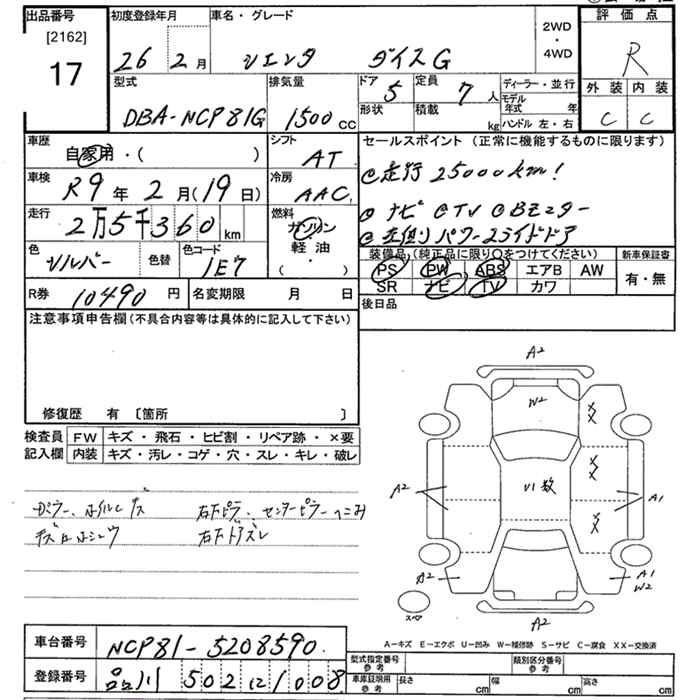 出品番号
[2162]
17
初度登録年月
26 2月
車名・グレード
シエンタ ダイスG
2WD
・
4WD
評価点
R
外装 内装
C C
型式
DBA-NCP81G
排気量
1500 CC
ドア 5
形状
定員 7 人
積載 kg
ディーラー・並行
モデル年式 年
ハンドル 左・右
車歴
自家用・( )
シフト
AT
車検
R9年2月(19日)
冷房
AAC
走行
2万5千360 km
燃料
ガソリン
軽油
・( )
色
シルバー
色替
色コード
1E7
R券 10490円
名変期限 月 日
セールスポイント (正常に機能するものに限ります)
走行 25000km!
ナビ TV Bモニター
左側リパワースライドドア
装備品(純正品に限り○をつけてください)
PS PW ABS エアB AW
SR ナビ TV カワ
新車保証書
有・無
後日品
注意事項申告欄(不具合内容等は具体的に記入して下さい)
修復歴 有 〔箇所 〕
検査員記入欄
FW キズ・飛石・ヒビ割・リペア跡・×要
内装 キズ・汚レ・コゲ・穴・スレ・キレ・破レ
ホイルキズ 右Fピラ、センターピラーヘこみ
右Fドアズレ
A2
W2
XX
XX
XX
U1数
A2
A1
A2
A1
W2
A2
スペア
A-キズ E-エクボ U-凹み W-補修跡 S-サビ C-腐食 XX-交換済
車台番号 NCP81-5208590
登録番号 品川 502 に 1008
型式指定番号 参考
類別区分番号 参考
車庫証明用 参考
長さ cm 幅 cm 高さ cm